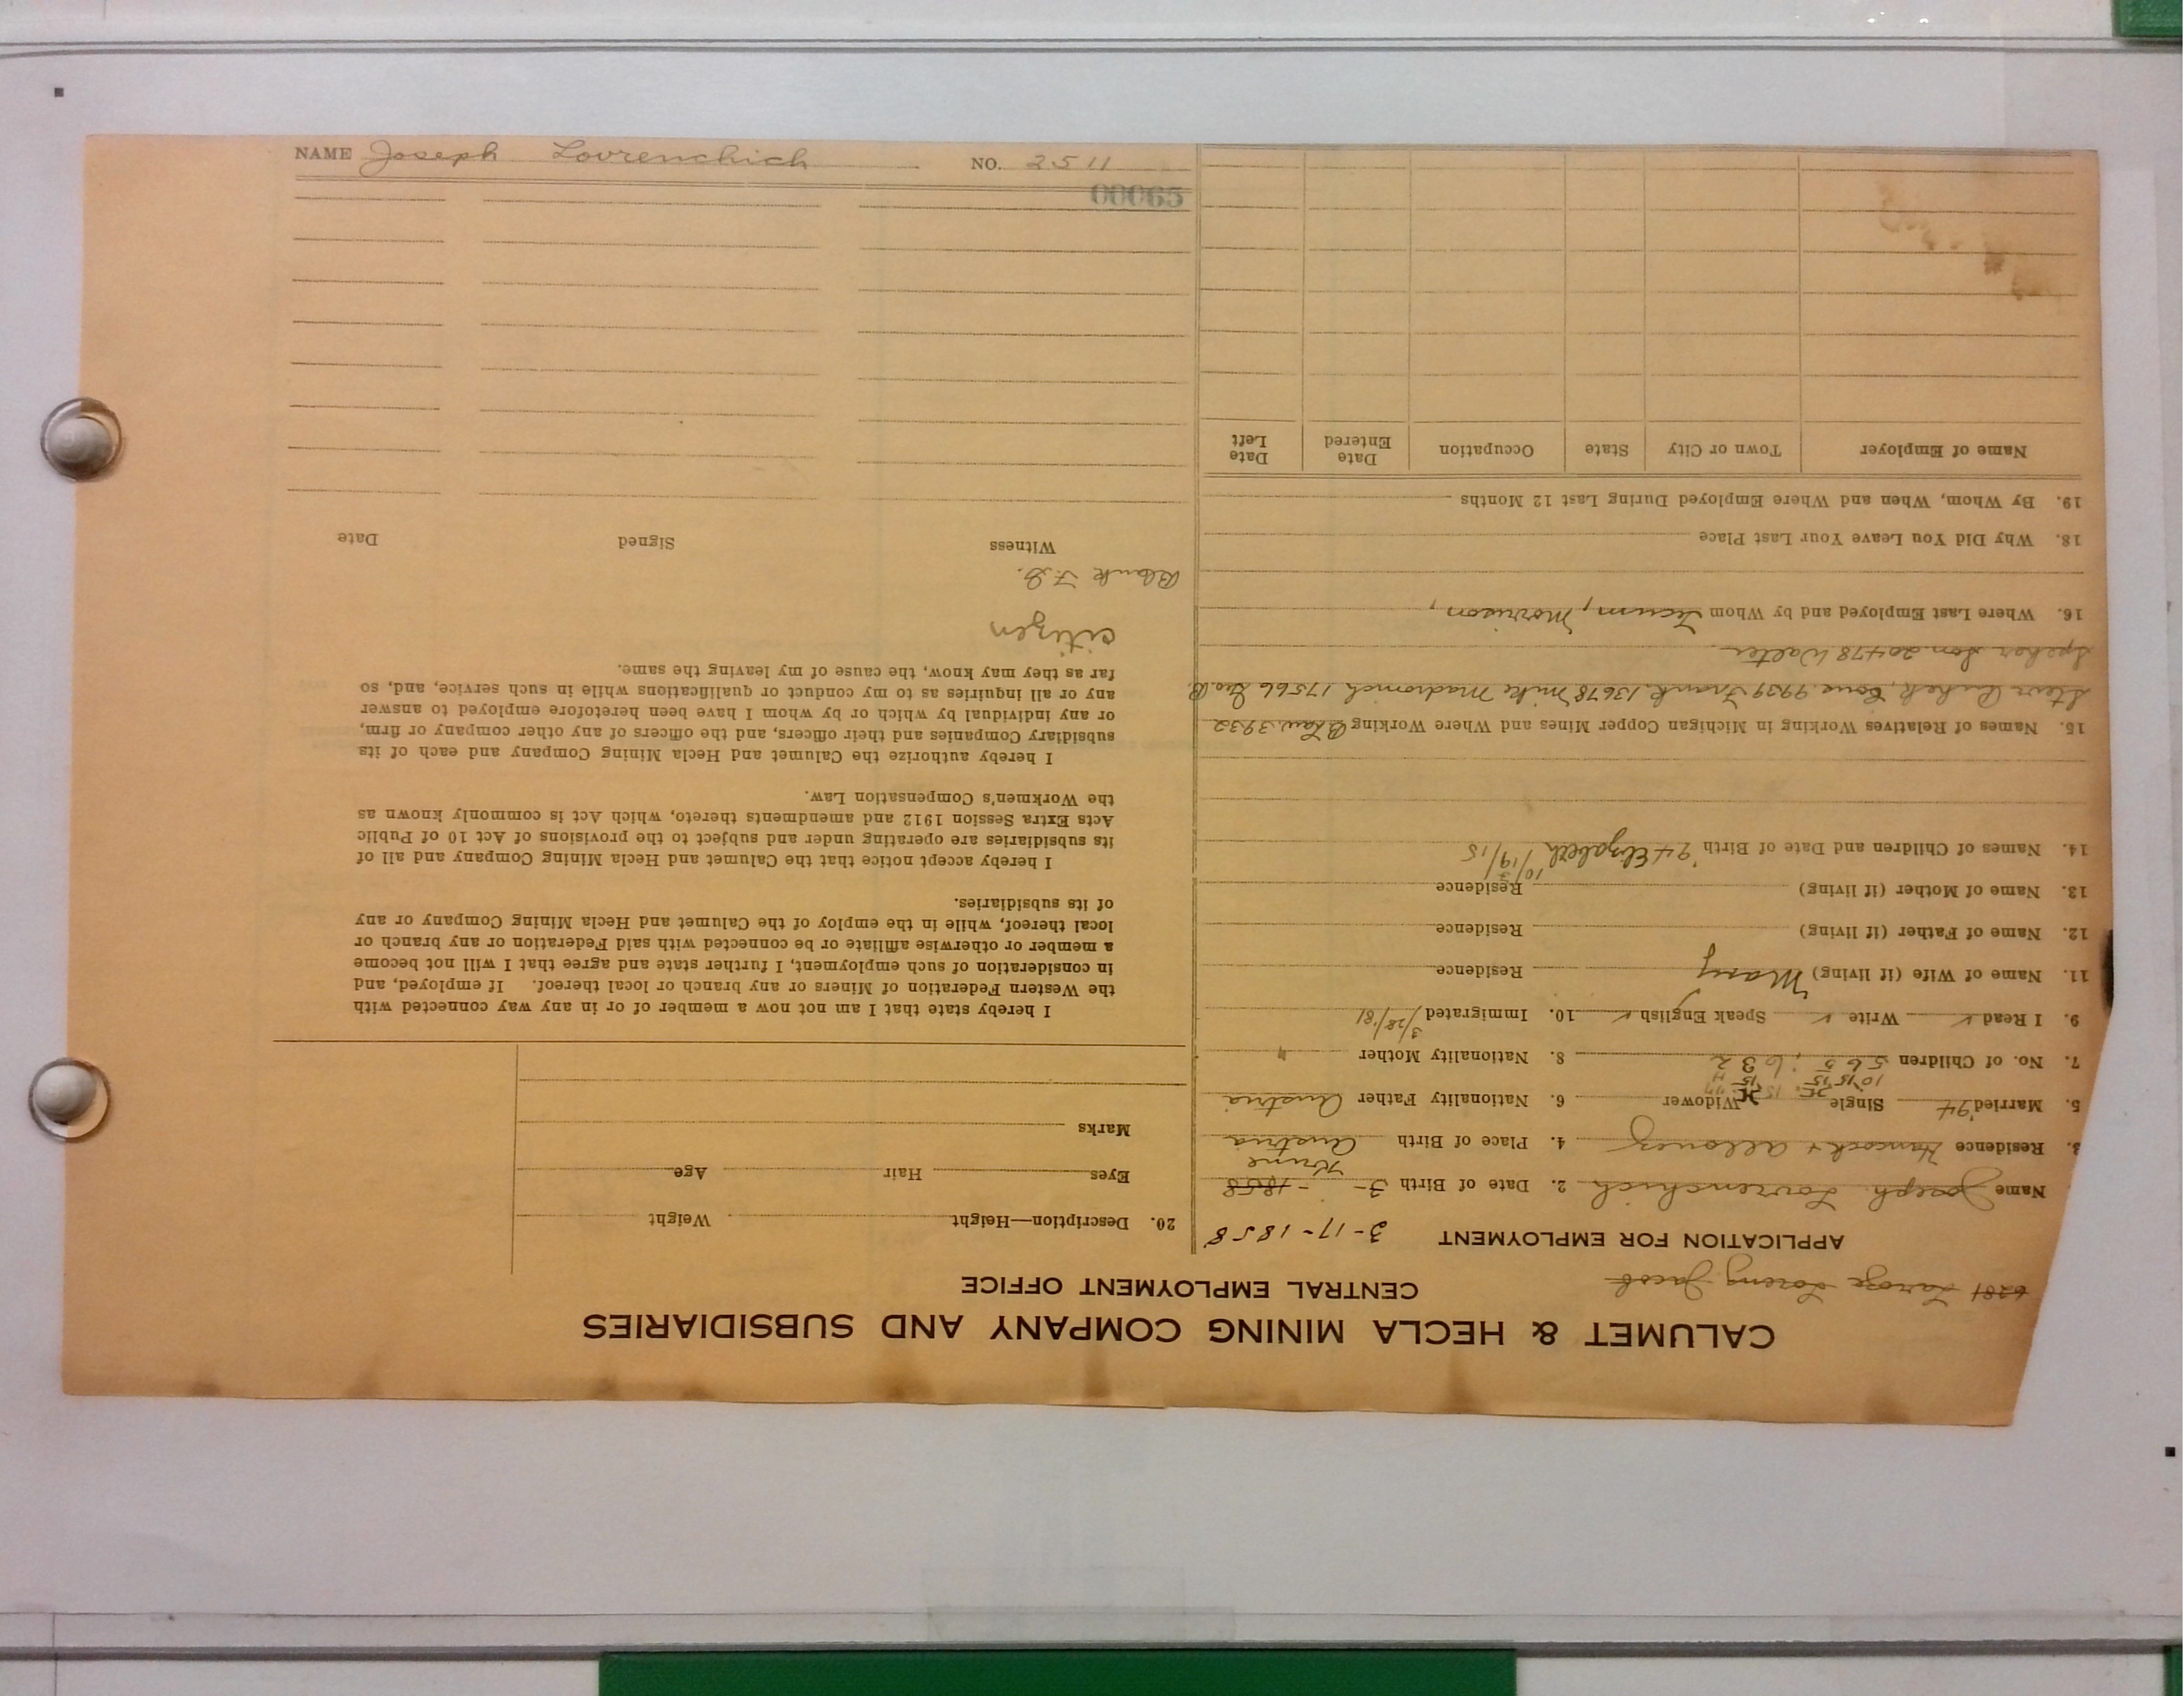 CALUMET & HECLA MINING COMPANY AND SUBSIDIARIES
CENTRAL EMPLOYMENT OFFICE
6281 Jacob
APPLICATION FOR EMPLOYMENT 3-17-1858
Name Joseph Lovrenchich 2. Date of Birth 3- - 1858
3. Residence Hancock + Allouez 4. Place of Birth Austria
5. Married '94 Single Widower 6. Nationality Father Austria
7. No. of Children 8. Nationality Mother "
9. I Read ✓ Write ✓ Speak English ✓ 10. Immigrated 3/28/81
11. Name of Wife (if living) Mary Residence
12. Name of Father (if living) Residence
13. Name of Mother (if living) Residence
14. Names of Children and Date of Birth '94 Elizabeth 10/19/15
15. Names of Relatives Working in Michigan Copper Mines and Where Working 3932
9939 Frank, 13678 Mike 17566 Geo.
Son 20478 Walter
16. Where Last Employed and by Whom Tecum, Morrison,
18. Why Did You Leave Your Last Place
19. By Whom, When and Where Employed During Last 12 Months
Name of Employer Town or City State Occupation Date Entered Date Left
20. Description—Height Weight
Eyes Hair Age
Marks
I hereby state that I am not now a member of or in any way connected with
the Western Federation of Miners or any branch or local thereof. If employed, and
in consideration of such employment, I further state and agree that I will not become
a member or otherwise affiliate or be connected with said Federation or any branch or
local thereof, while in the employ of the Calumet and Hecla Mining Company or any
of its subsidiaries.
I hereby accept notice that the Calumet and Hecla Mining Company and all of
its subsidiaries are operating under and subject to the provisions of Act 10 of Public
Acts Extra Session 1912 and amendments thereto, which Act is commonly known as
the Workmen's Compensation Law.
I hereby authorize the Calumet and Hecla Mining Company and each of its
subsidiary Companies and their officers, and the officers of any other company or firm,
or any individual by which or by whom I have been heretofore employed to answer
any or all inquiries as to my conduct or qualifications while in such service, and, so
far as they may know, the cause of my leaving the same.
citizen
Blank
Witness Signed Date
00065
NAME Joseph Lovrenchich NO. 2511